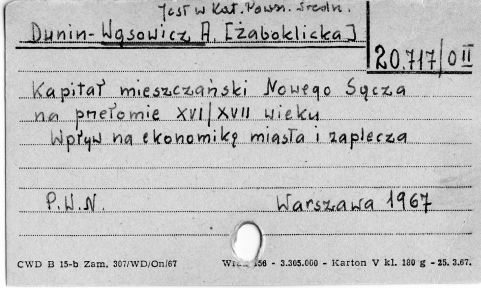 Jest w Kat. Pown. Środn.
Dunin-Wąsowicz A. [Żaboklicka]
20.717/O II
Kapitał mieszczański Nowego Sącza
na przełomie XVI/XVII wieku
Wpływ na ekonomikę miasta i zaplecza
P.W.N. Warszawa 1967
CWD B 15-b Zam. 307/WD/On/67 56 - 3.305.000 - Karton V kl. 180 g - 25. 3.67.